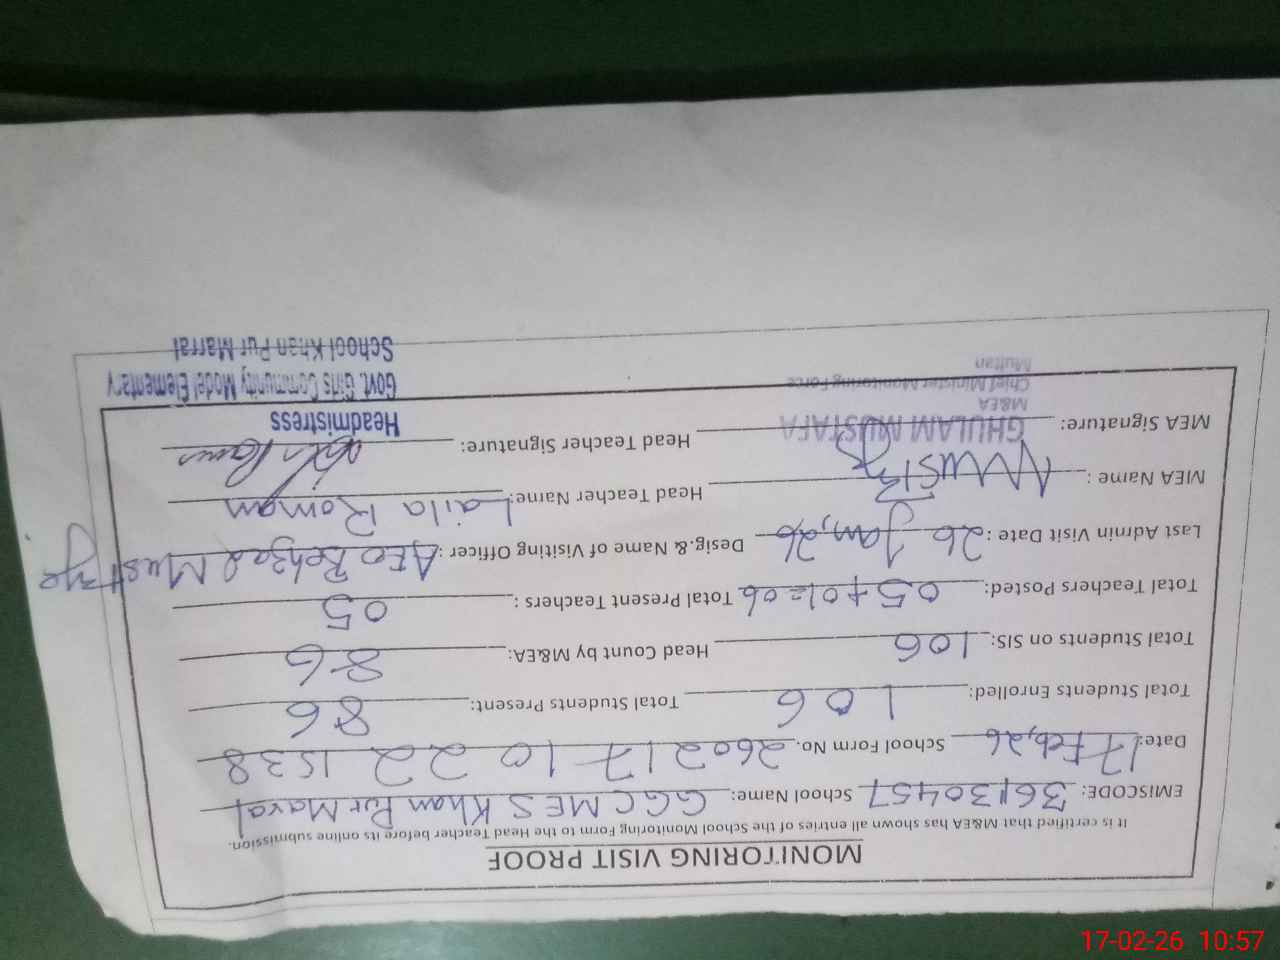 MONITORING VISIT PROOF
It is certified that M&EA has shown all entries of the School Monitoring Form to the Head Teacher before its online submission.
EMISCODE: 36130457 School Name: GGCMES Khan Pur Maral
Date: 17 Feb, 26 School Form No. 260217 10 22 1538
Total Students Enrolled: 106 Total Students Present: 86
Total Students on SIS: 106 Head Count by M&EA: 86
Total Teachers Posted: 05+01=06 Total Present Teachers : 05
Last Admin Visit Date : 26 Jan, 26 Desig.& Name of Visiting Officer : AEO Behzad Mustafa
MEA Name : Head Teacher Name: Laila Roman
MEA Signature: Head Teacher Signature:
GHULAM MUSTAFA
M&EA
Chief Minister Monitoring Force
Multan
Headmistress
Govt. Girls Community Model Elementary
School Khan Pur Marral
17-02-26 10:57